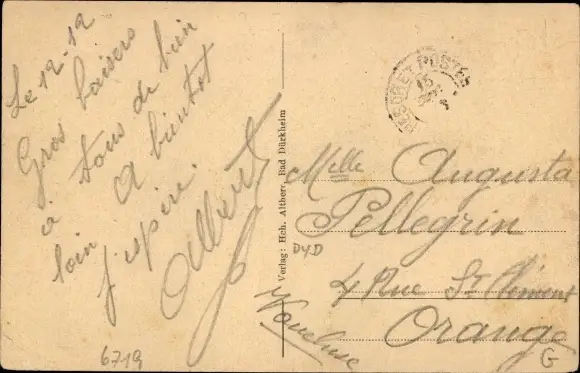 Le 12-12
Gros baisers
à tous de bien
loin A bientôt
j'espère.
Albert
Verlag: Hch. Altherr, Bad Dürkheim
ET POSTES
15
Melle Augusta
Pellegrin
4 Rue St Clément
Orange
Vaucluse
6719
G